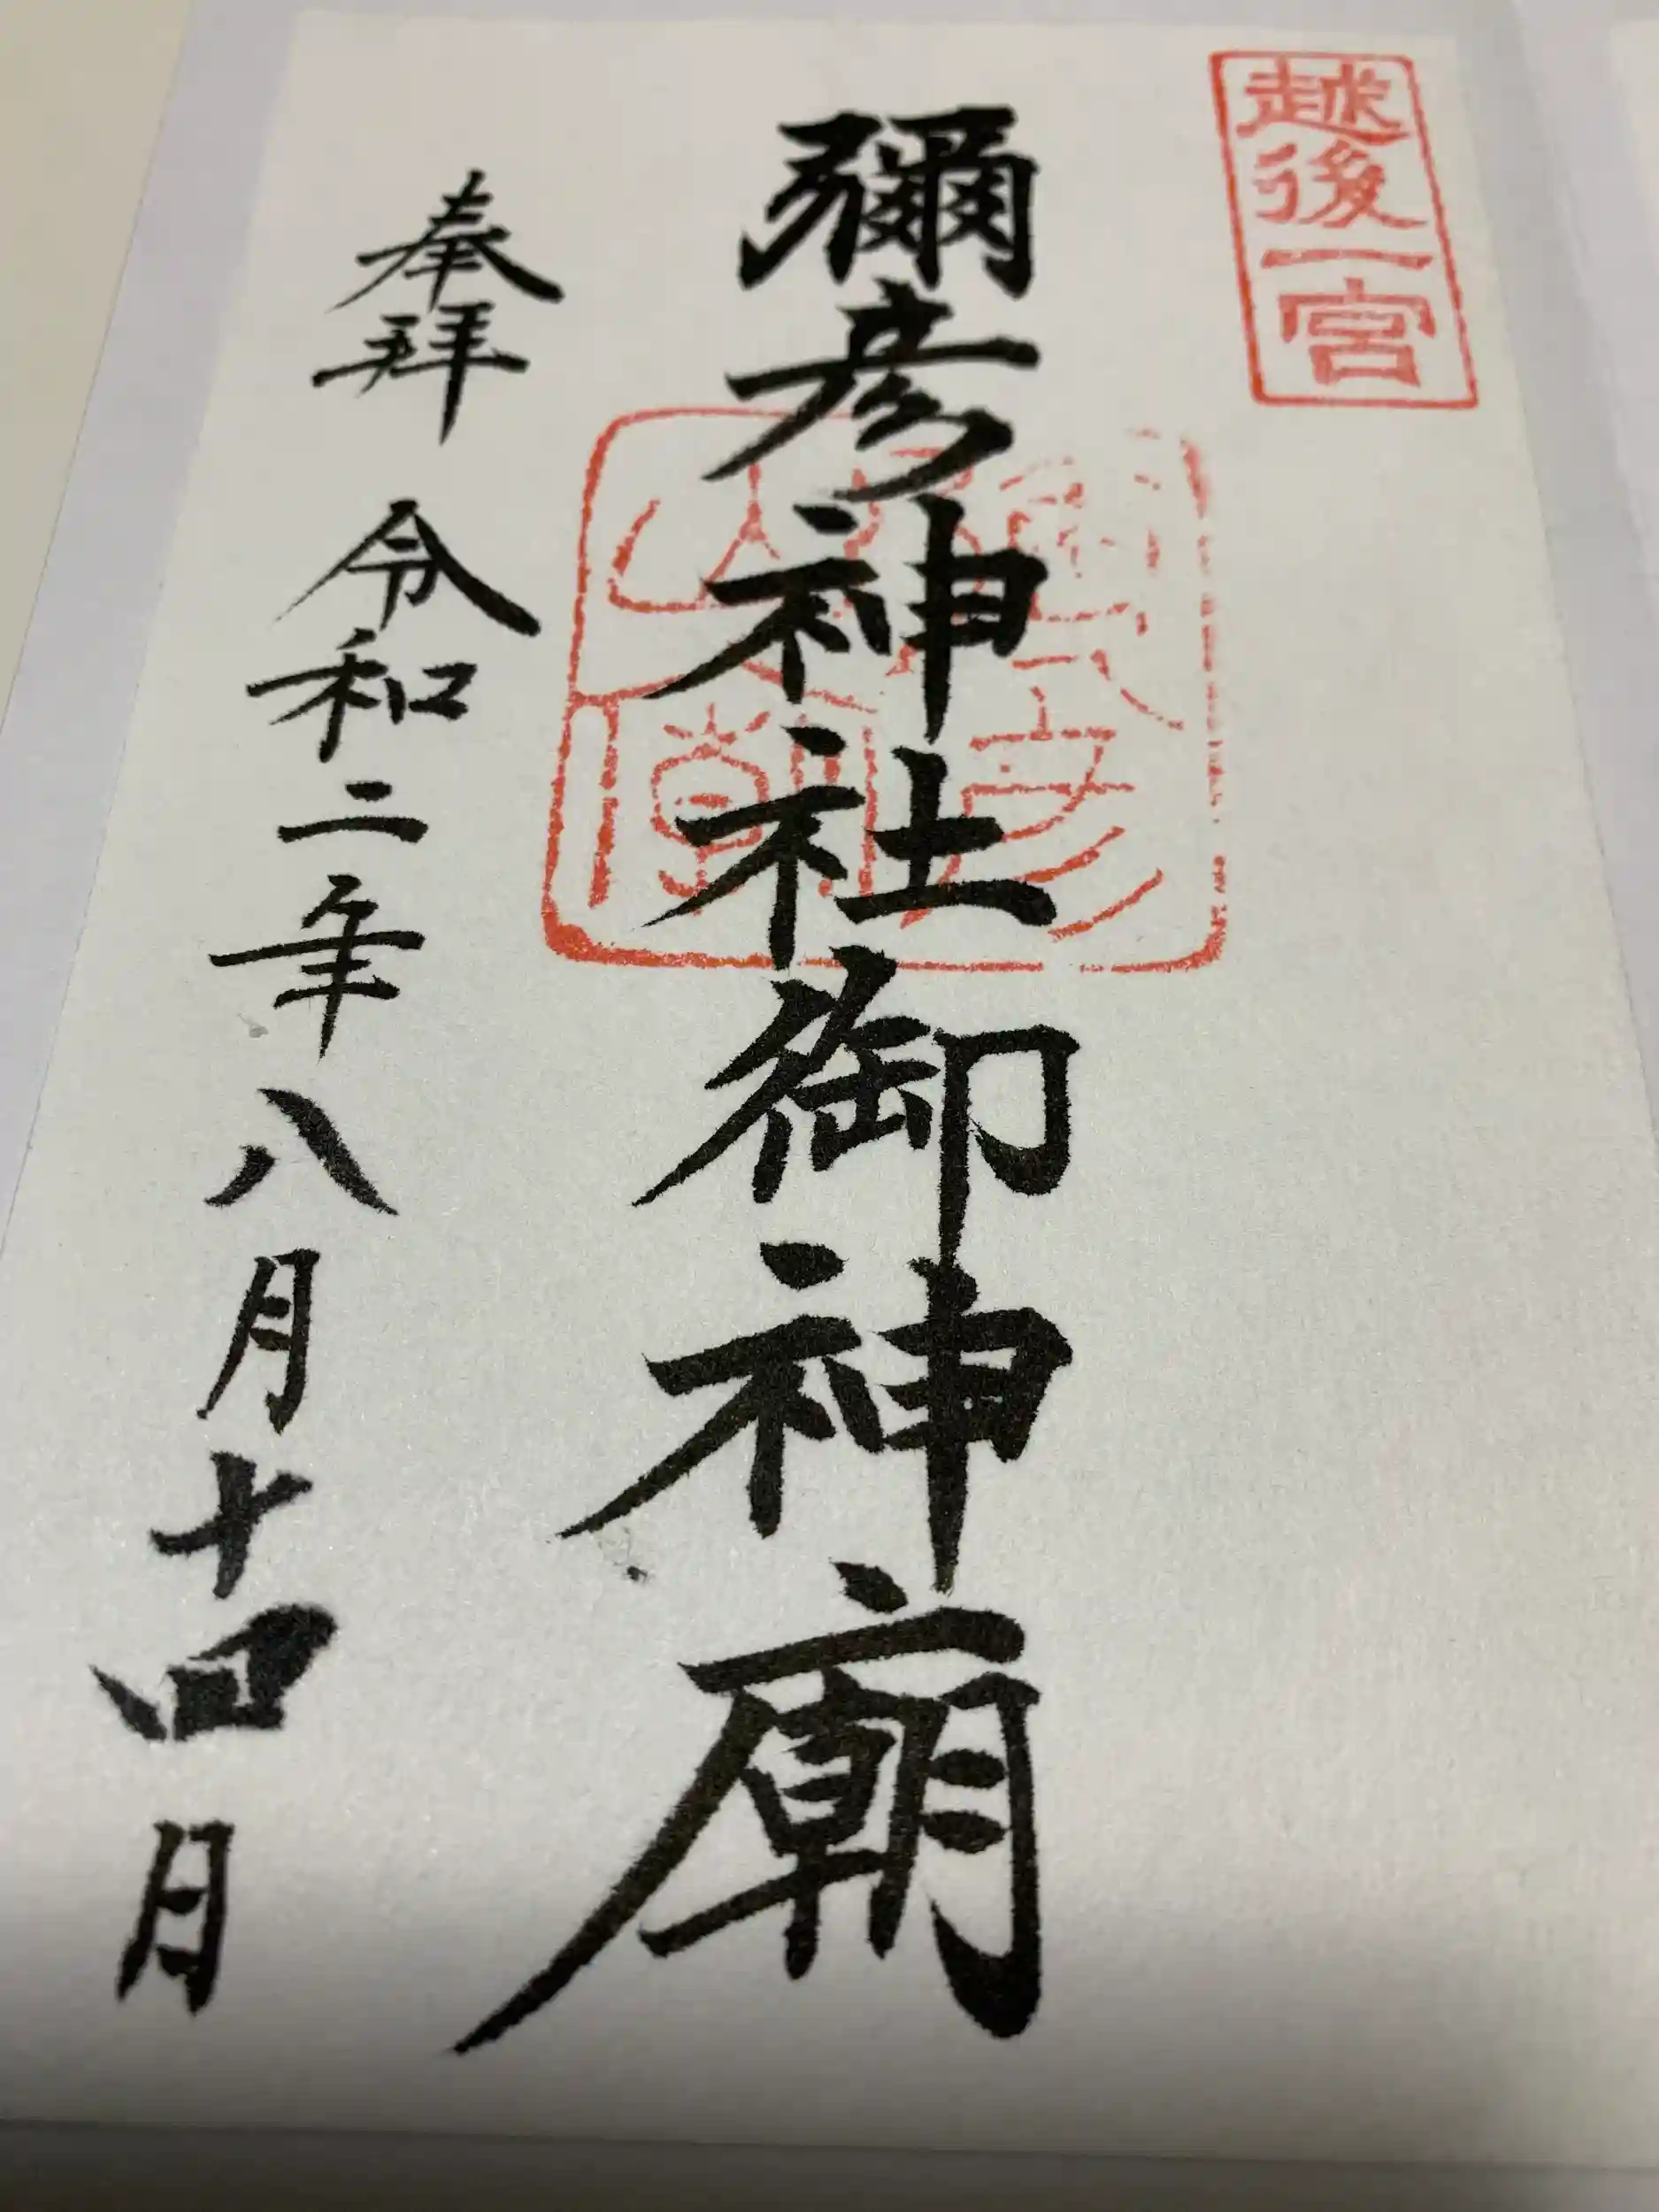 越後一宮
彌彦神社御神廟
奉拜 令和二年八月十四日